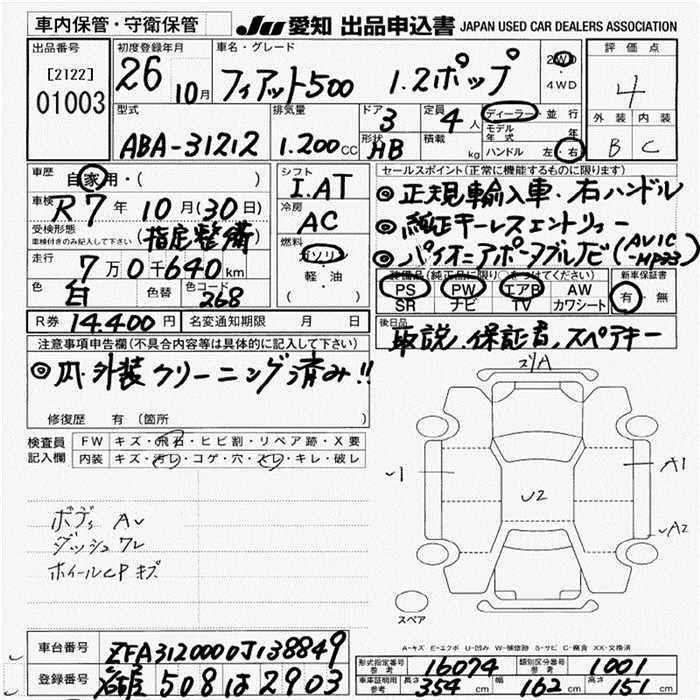 車内保管・守衛保管
JU 愛知 出品申込書 JAPAN USED CAR DEALERS ASSOCIATION
出品番号
[2122]
01003
初度登録年月
26 10月
車名・グレード
フィアット500 1.2ポップ
2WD
・
4WD
評価点
4
外装 内装
B C
型式
ABA-31212
排気量
1.200cc
ドア 3
形状 HB
定員 4人
積載 kg
ディーラー・並行
モデル年式 年
ハンドル 左・右
車歴 自家用・( )
車検 R7年10月(30日)
受検形態 (指定整備)
車検付きのみ記入して下さい
走行 7万0千640km
色 白 色替 色コード 268
シフト
I.AT
冷房
AC
燃料
ガソリン
・
軽・油
( )
セールスポイント(正常に機能するものに限ります)
◎正規輸入車.右ハンドル
◎純正キーレスエントリー
◎パイオニアポータブルナビ(AVIC-MP33)
装備品(純正品に限り○をつけてください)
PS PW エアB AW
SR ナビ TV カワシート
新車保証書
有・無
R券 14.400円 名変通知期限 月 日
後日品
取説.保証書.スペアキー
注意事項申告欄(不具合内容等は具体的に記入して下さい)
◎内.外装クリーニング済み!!
修復歴 有 (箇所 )
検査員記入欄
FW キズ・飛石・ヒビ割・リペア跡・X要
内装 キズ・汚レ・コゲ・穴・スレ・キレ・破レ
ボディ Aい
ダッシュワレ
ホイールCPキズ
ズリA
U1
U2
A1
A2
スペア
A-キズ E-エクボ U-凹み W-補修跡 S-サビ C-腐食 XX-交換済
車台番号 ZFA3120000J138849
登録番号 508 は 2903
形式指定番号 参考 16074 類別区分番号 参考 1001
車庫証明用 参考 長さ 354cm 幅 162cm 高さ 151cm